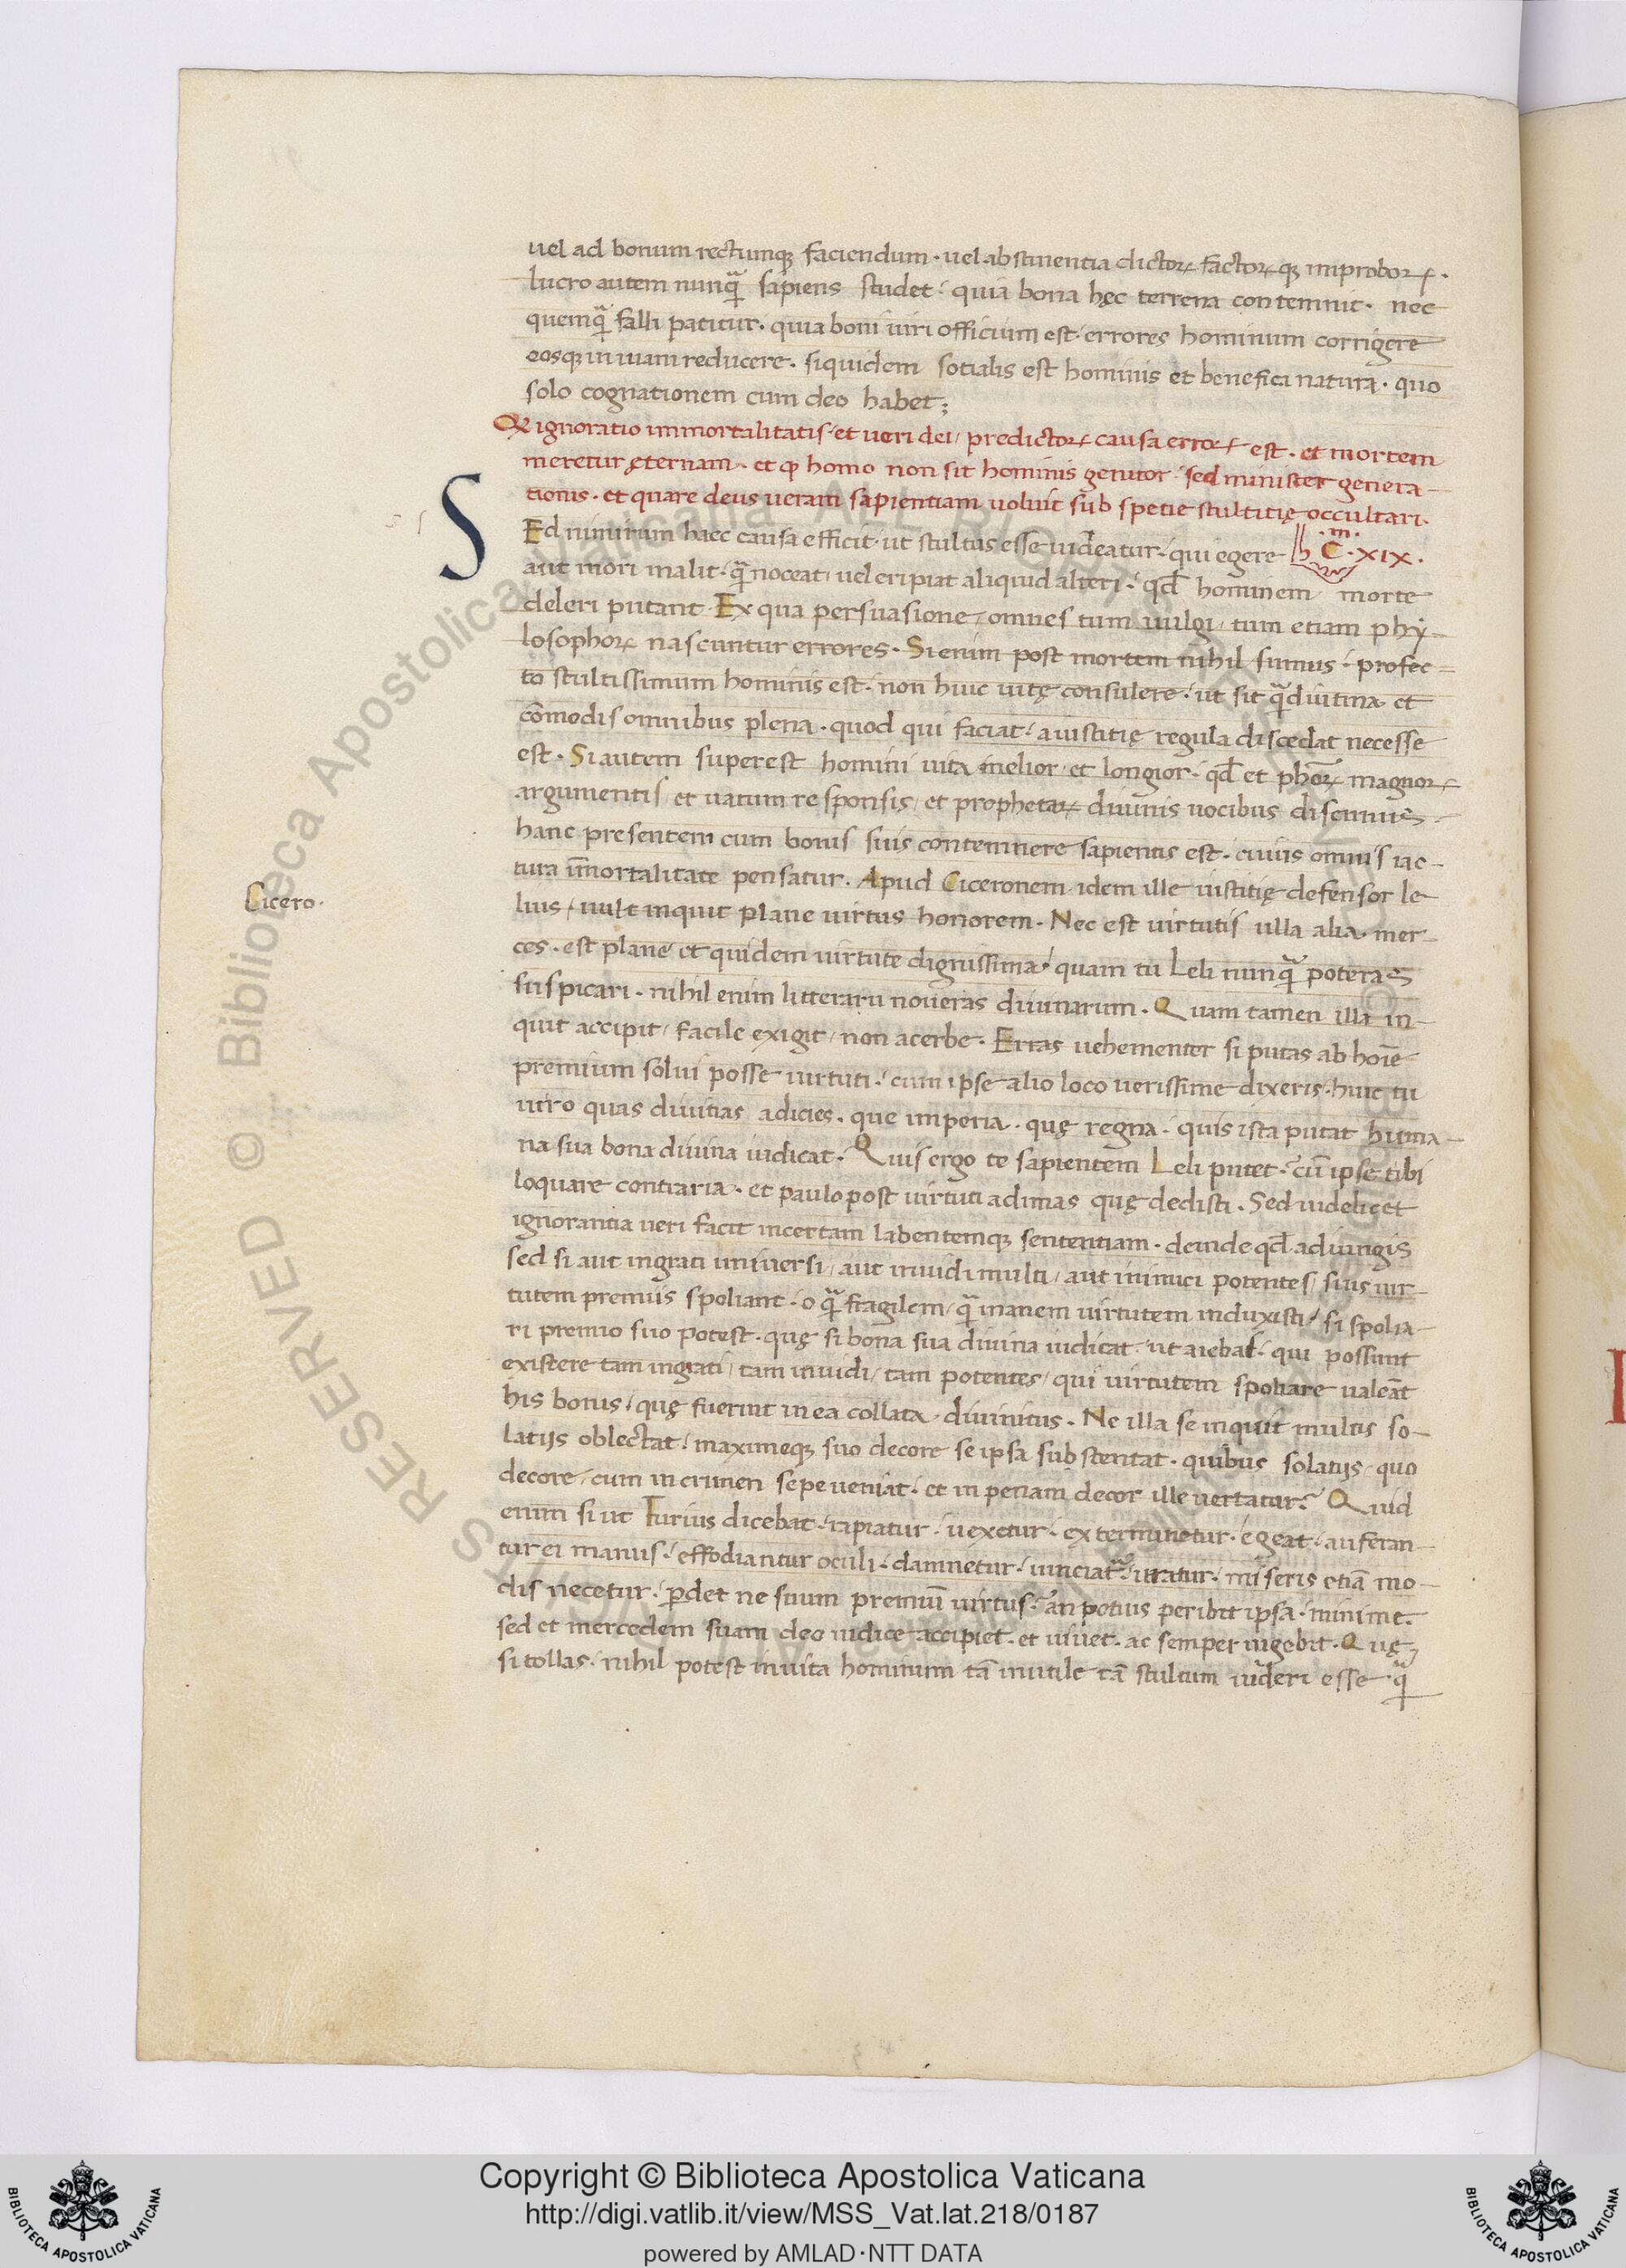 uel ad bonum rectumqꝫ faciendum · uel abstinentia dictoꝝ factoꝝqꝫ improboꝝ ·
lucro autem nunqͣ sapiens studet · quia bona hęc terrena contemnit · nec
quemqͣ falli patitur · quia boni uiri officium est · errores hominum corrigere
eosqꝫ in uiam reducere · siquidem sotialis est hominis et benefica natura · quo
solo cognationem cum deo habet ;
Qꝫ ignoratio immortalitatis · et ueri dei / predictoꝝ causa erroꝝ est · et mortem
meretur ęternam · et ꝙ homo non sit hominis genitor · sed minister genera-
tionis · et quare deus ueram sapientiam uoluit sub spetie stultitię occultari ·
SEd nimirum haec causa efficit · ut stultus esse uideatur · qui egere · m · C · XIX ·
aut mori malit · qͣ noceat / uel eripiat aliquid alteri · qđ hominem morte
deleri putant · Ex qua persuasione / omnes tum uulgi / tum etiam phy-
losophoꝝ nascuntur errores · Si enim post mortem nihil sumus · profec-
to stultissimum hominis est · non huic uitę consulere · ut sit qͣ diutina et
cōmodis omnibus plena · quod qui faciat / a iustitię regula discedat necesse
est · Si autem superest homini uita melior et longior · qđ et phōꝝ magnoꝝ
argumentis / et uatum responsis / et prophetaꝝ diuinis uocibus discimus ·
hanc presentem cum bonis suis contemnere sapientis est · cuius omnis iac-
tura īmortalitate pensatur · Apud Ciceronem idem ille iustitię defensor le-
Cicero ·
lius / uult inquit plane uirtus honorem · Nec est uirtutis ulla alia mer-
ces · est plane et quidem uirtute dignissima · quam tu Leli nunqͣ poteras
suspicari · nihil enim litterarū noueras diuinarum · Quam tamen illa in-
quit accipit / facile exigit / non acerbe · Erras uehementer si putas ab hoīe
premium solui posse uirtuti · cum ipse alio loco uerissime dixeris · huic tu
uiro quas diuitias adicies · que imperia · quę regna · quis ista putat huma-
na sua bona diuina iudicat · Quis ergo te sapientem Leli putet · cū ipse tibi
loquare contraria · et paulo post uirtuti adimas quę dedisti · Sed uidelicet
ignorantia ueri facit incertam labentemqꝫ sententiam · deinde qđ adiungis
sed si aut ingrati uniuersi / aut inuidi multi / aut inimici potentes / suis uir-
tutem premiis spoliant · o qͣ fragilem / qͣ inanem uirtutem induxisti / si spolia-
ri premio suo potest · quę si bona sua diuina iudicat · ut aiebas · qui possunt
existere tam ingrati / tam inuidi / tam potentes / qui uirtutem spoliare ualeāt
his bonis / quę fuerint in ea collata diuinitus · Ne illa se inquit multis so-
latijs oblectat / maximeqꝫ suo decore se ipsa substentat · quibus solatijs / quo
decore / cum in crimen sepe ueniat · et in penam decor ille uertatur ? Quid
enim si ut Furius dicebat · rapiatur · uexetur · exterminetur · egeat · auferan-
tur ei manus · effodiantur oculi · damnetur · uinciatͬ · uratur · miseris etiā mo-
dis necetur · ꝑdet ne suum premiū uirtus ? an potius peribit ipsa · minime ·
sed et mercedem suam deo iudice accipiet · et uiuet · ac semper uigebit · Quę
si tollas · nihil potest in uita hominum tā inutile tā stultum uideri esse qͣ
Copyright © Biblioteca Apostolica Vaticana
http://digi.vatlib.it/view/MSS_Vat.lat.218/0187
powered by AMLAD·NTT DATA